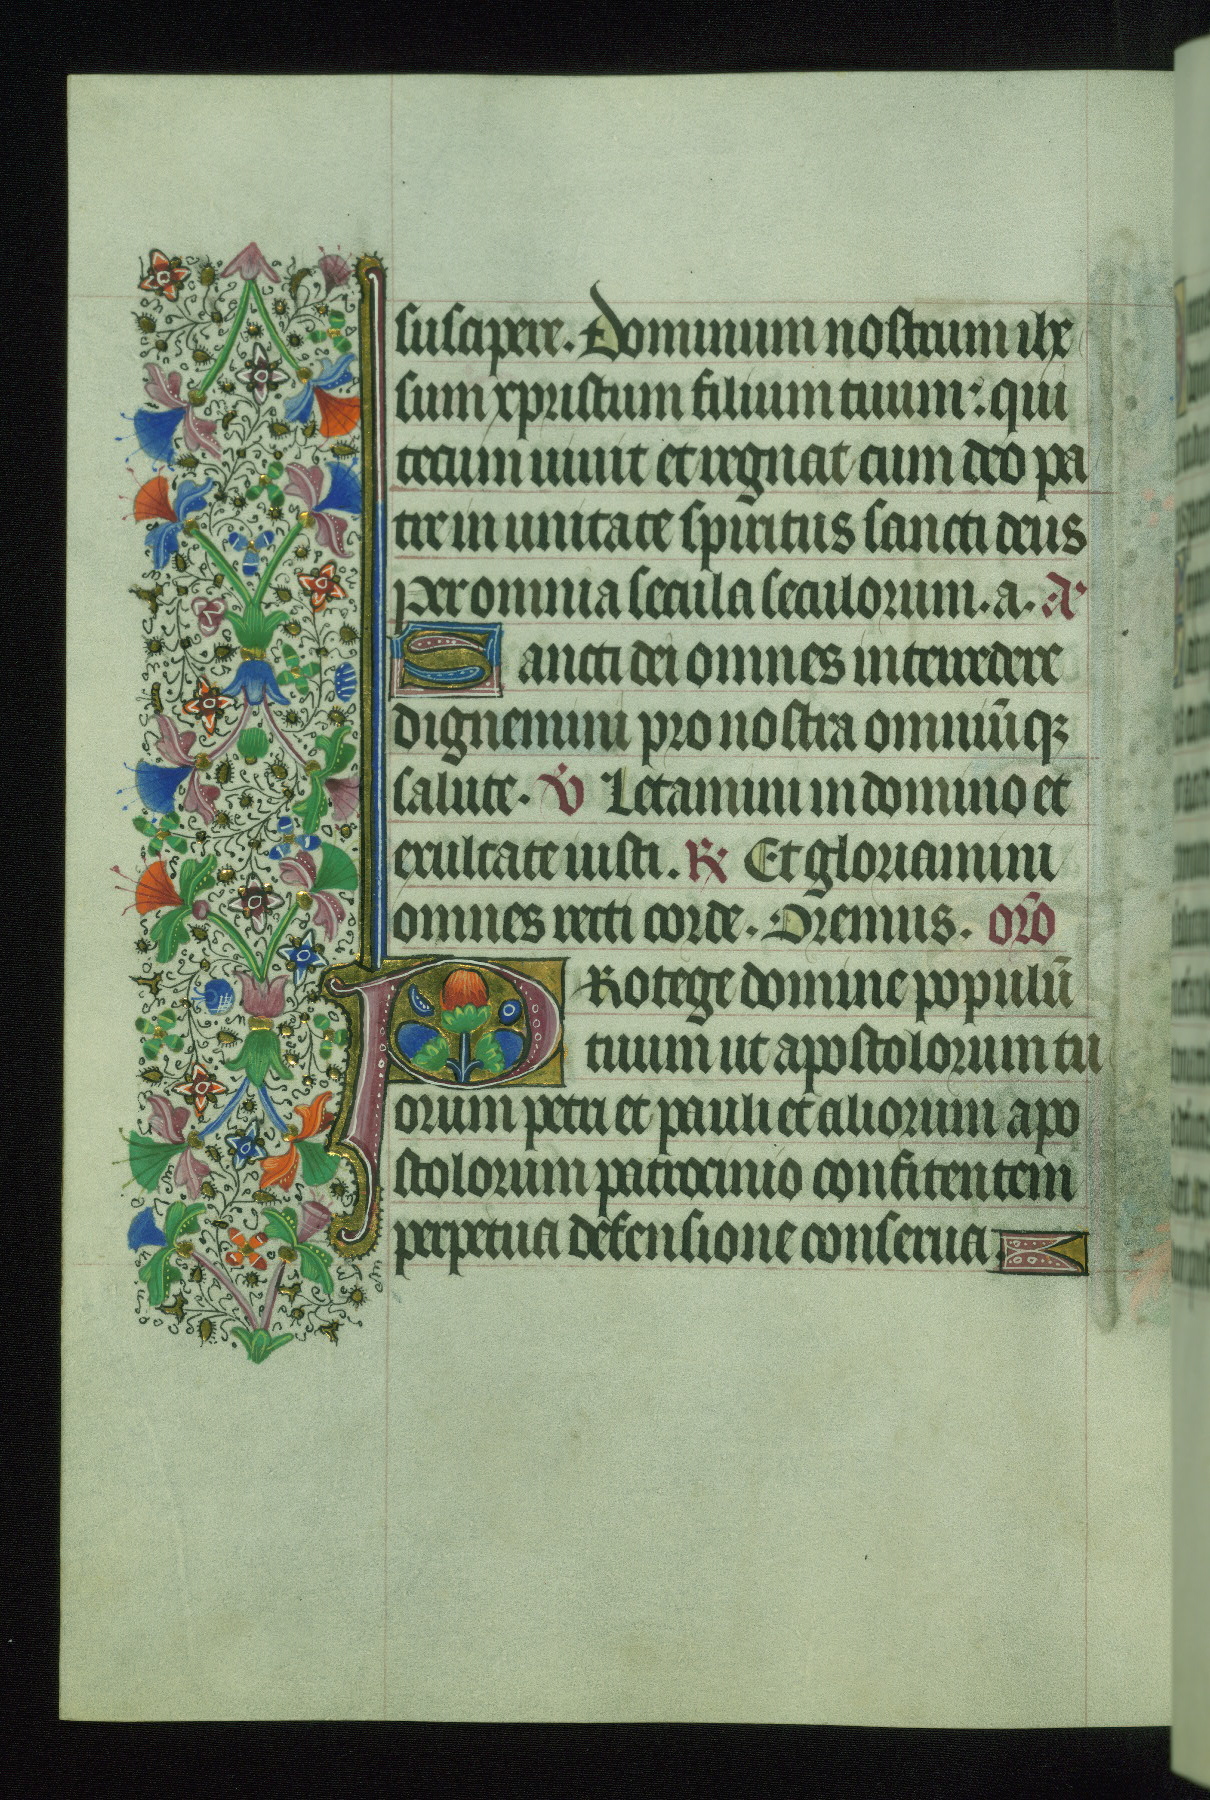 suscipere. Dominum nostrum ihe
sum xpristum filium tuum: qui
tecum uiuit et regnat cum deo pa
tre in unitate spiritus sancti deus
per omnia secula seculorum. a. A'
Sancti dei omnes intercedere
dignemini pro nostra omniūqꝫ
salute. V̄ Letamini in domino et
exultate iusti. R̷ Et gloriamini
omnes recti corde. Oremus. orō
PRotege domine populū
tuum ut apostolorum tu
orum petri et pauli et aliorum apo
stolorum patrocinio confitentem
perpetua defensione conserua